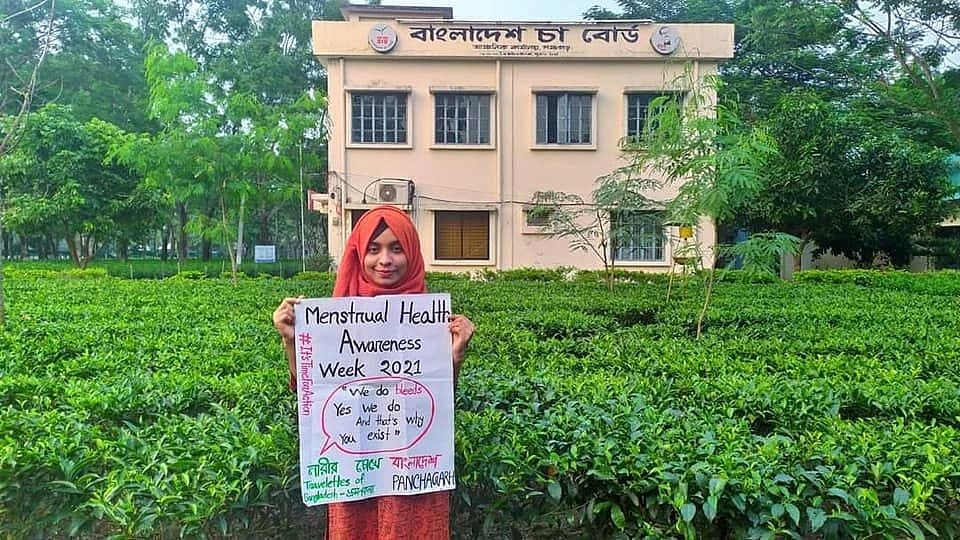 বাংলাদেশ চা বোর্ড
আঞ্চলিক কার্যালয়, পঞ্চগড়
Menstrual Health
Awareness
Week 2021
#It'sTimeForAction
"We do bleeds
Yes we do
And that's why
You exist"
নারীর চোখে বাংলাদেশ
Travelettes of
Bangladesh - ভ্রমণকন্যা
PANCHAGARH